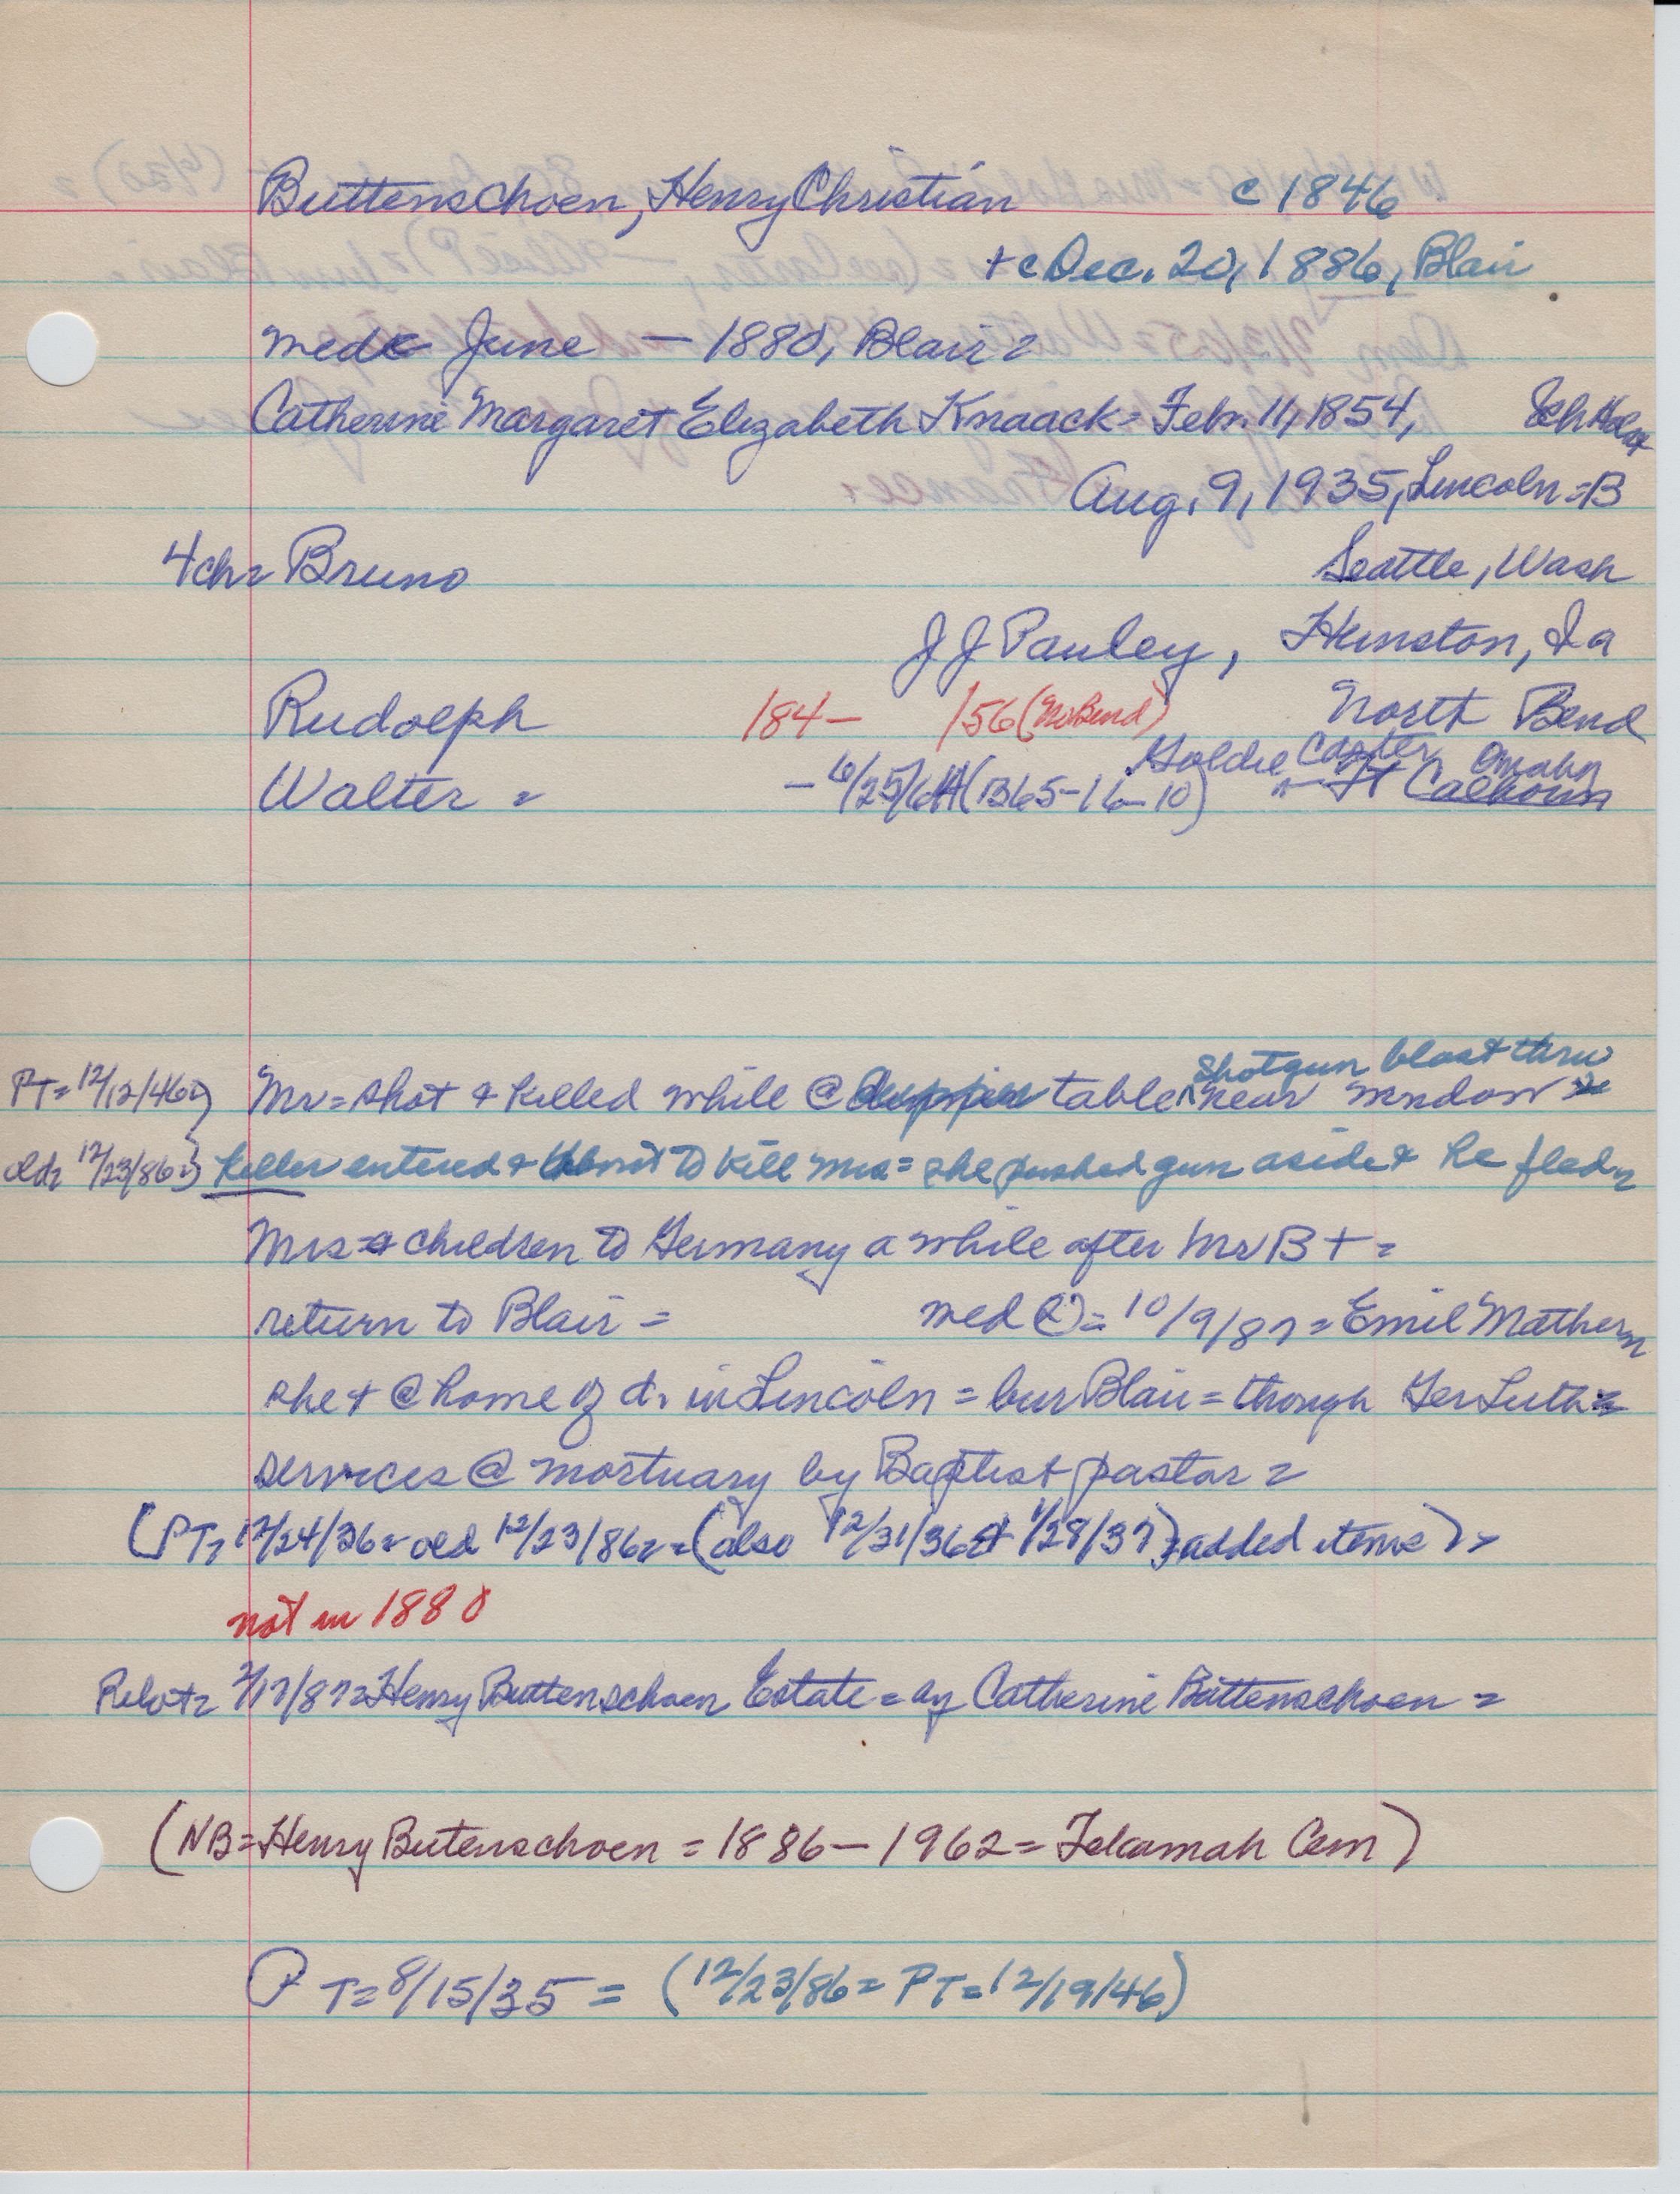 Buttenschoen, Henry Christian c 1846
+ c Dec. 20, 1886, Blair
med c June — 1880, Blair =
Catherine Margaret Elizabeth Knaack = Febr. 11, 1854, Sch Holst
Aug. 9, 1935, Lincoln = B
4 ch = Bruno Seattle, Wash
J J Pauley, Hinston, Ia
Rudolph 184— /56 (No Bend) North Bend
Goldie Carter Omaha
Walter = — 6/25/64 (B65-16-10) Ft Calhoun
shotgun blast thru
PT = 12/12/46 = } Mr = shot & killed while @ supper table ^ near window
old = 12/23/86 = } killer entered & about to kill Mrs = she pushed gun aside & he fled =
Mrs & children to Germany a while after Mr B + =
return to Blair = med (2) = 10/9/87 = Emil Mathern
she + @ home of d. in Lincoln = bur Blair = though Ger Luth =
services @ mortuary by Baptist pastor =
(PT = 12/24/36 = old 12/23/86 = (also 12/31/36 & 1/28/37) added items) =
not in 1880
Pilot = 2/17/87 = Henry Buttenschoen Estate = by Catherine Buttenschoen =
(NB = Henry Butenschoen = 1886 — 1962 = Tekamah Cem)
PT = 8/15/35 = (12/23/86 = PT = 12/19/46)